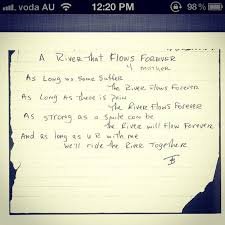 voda AU 12:20 PM 98 %
A River that Flows Forever
4 mother
As Long as some Suffer
The River Flows Forever
As Long As there is Pain
The River Flows Forever
As strong as a smile can be
the River will Flow Forever
And as long as u R with me
we'll ride the River Together